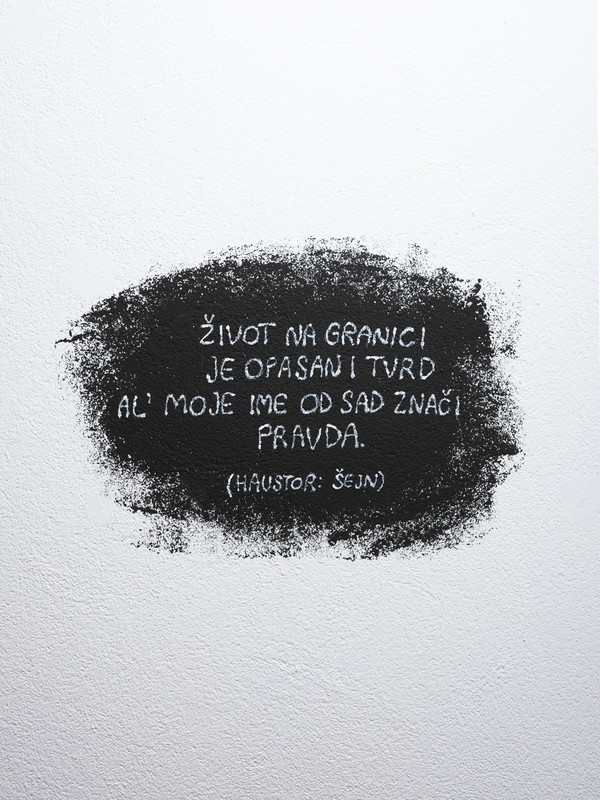 ŽIVOT NA GRANICI
JE OPASAN I TVRD
AL' MOJE IME OD SAD ZNAČI
PRAVDA.
(HAUSTOR: ŠEJN)